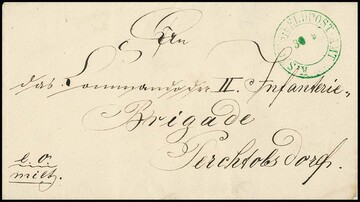 An
das Commando der II. Infanterie-
Brigade
Perchtolsdorf.
e. o.
milt.
FELDPOST AMT